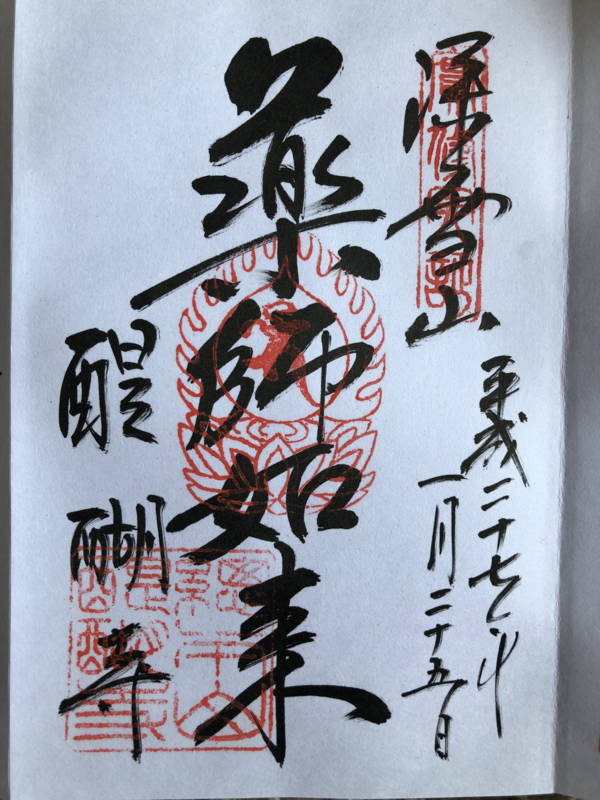 深雪山
平成二十七年
一月二十五日
薬師如来
醍醐寺